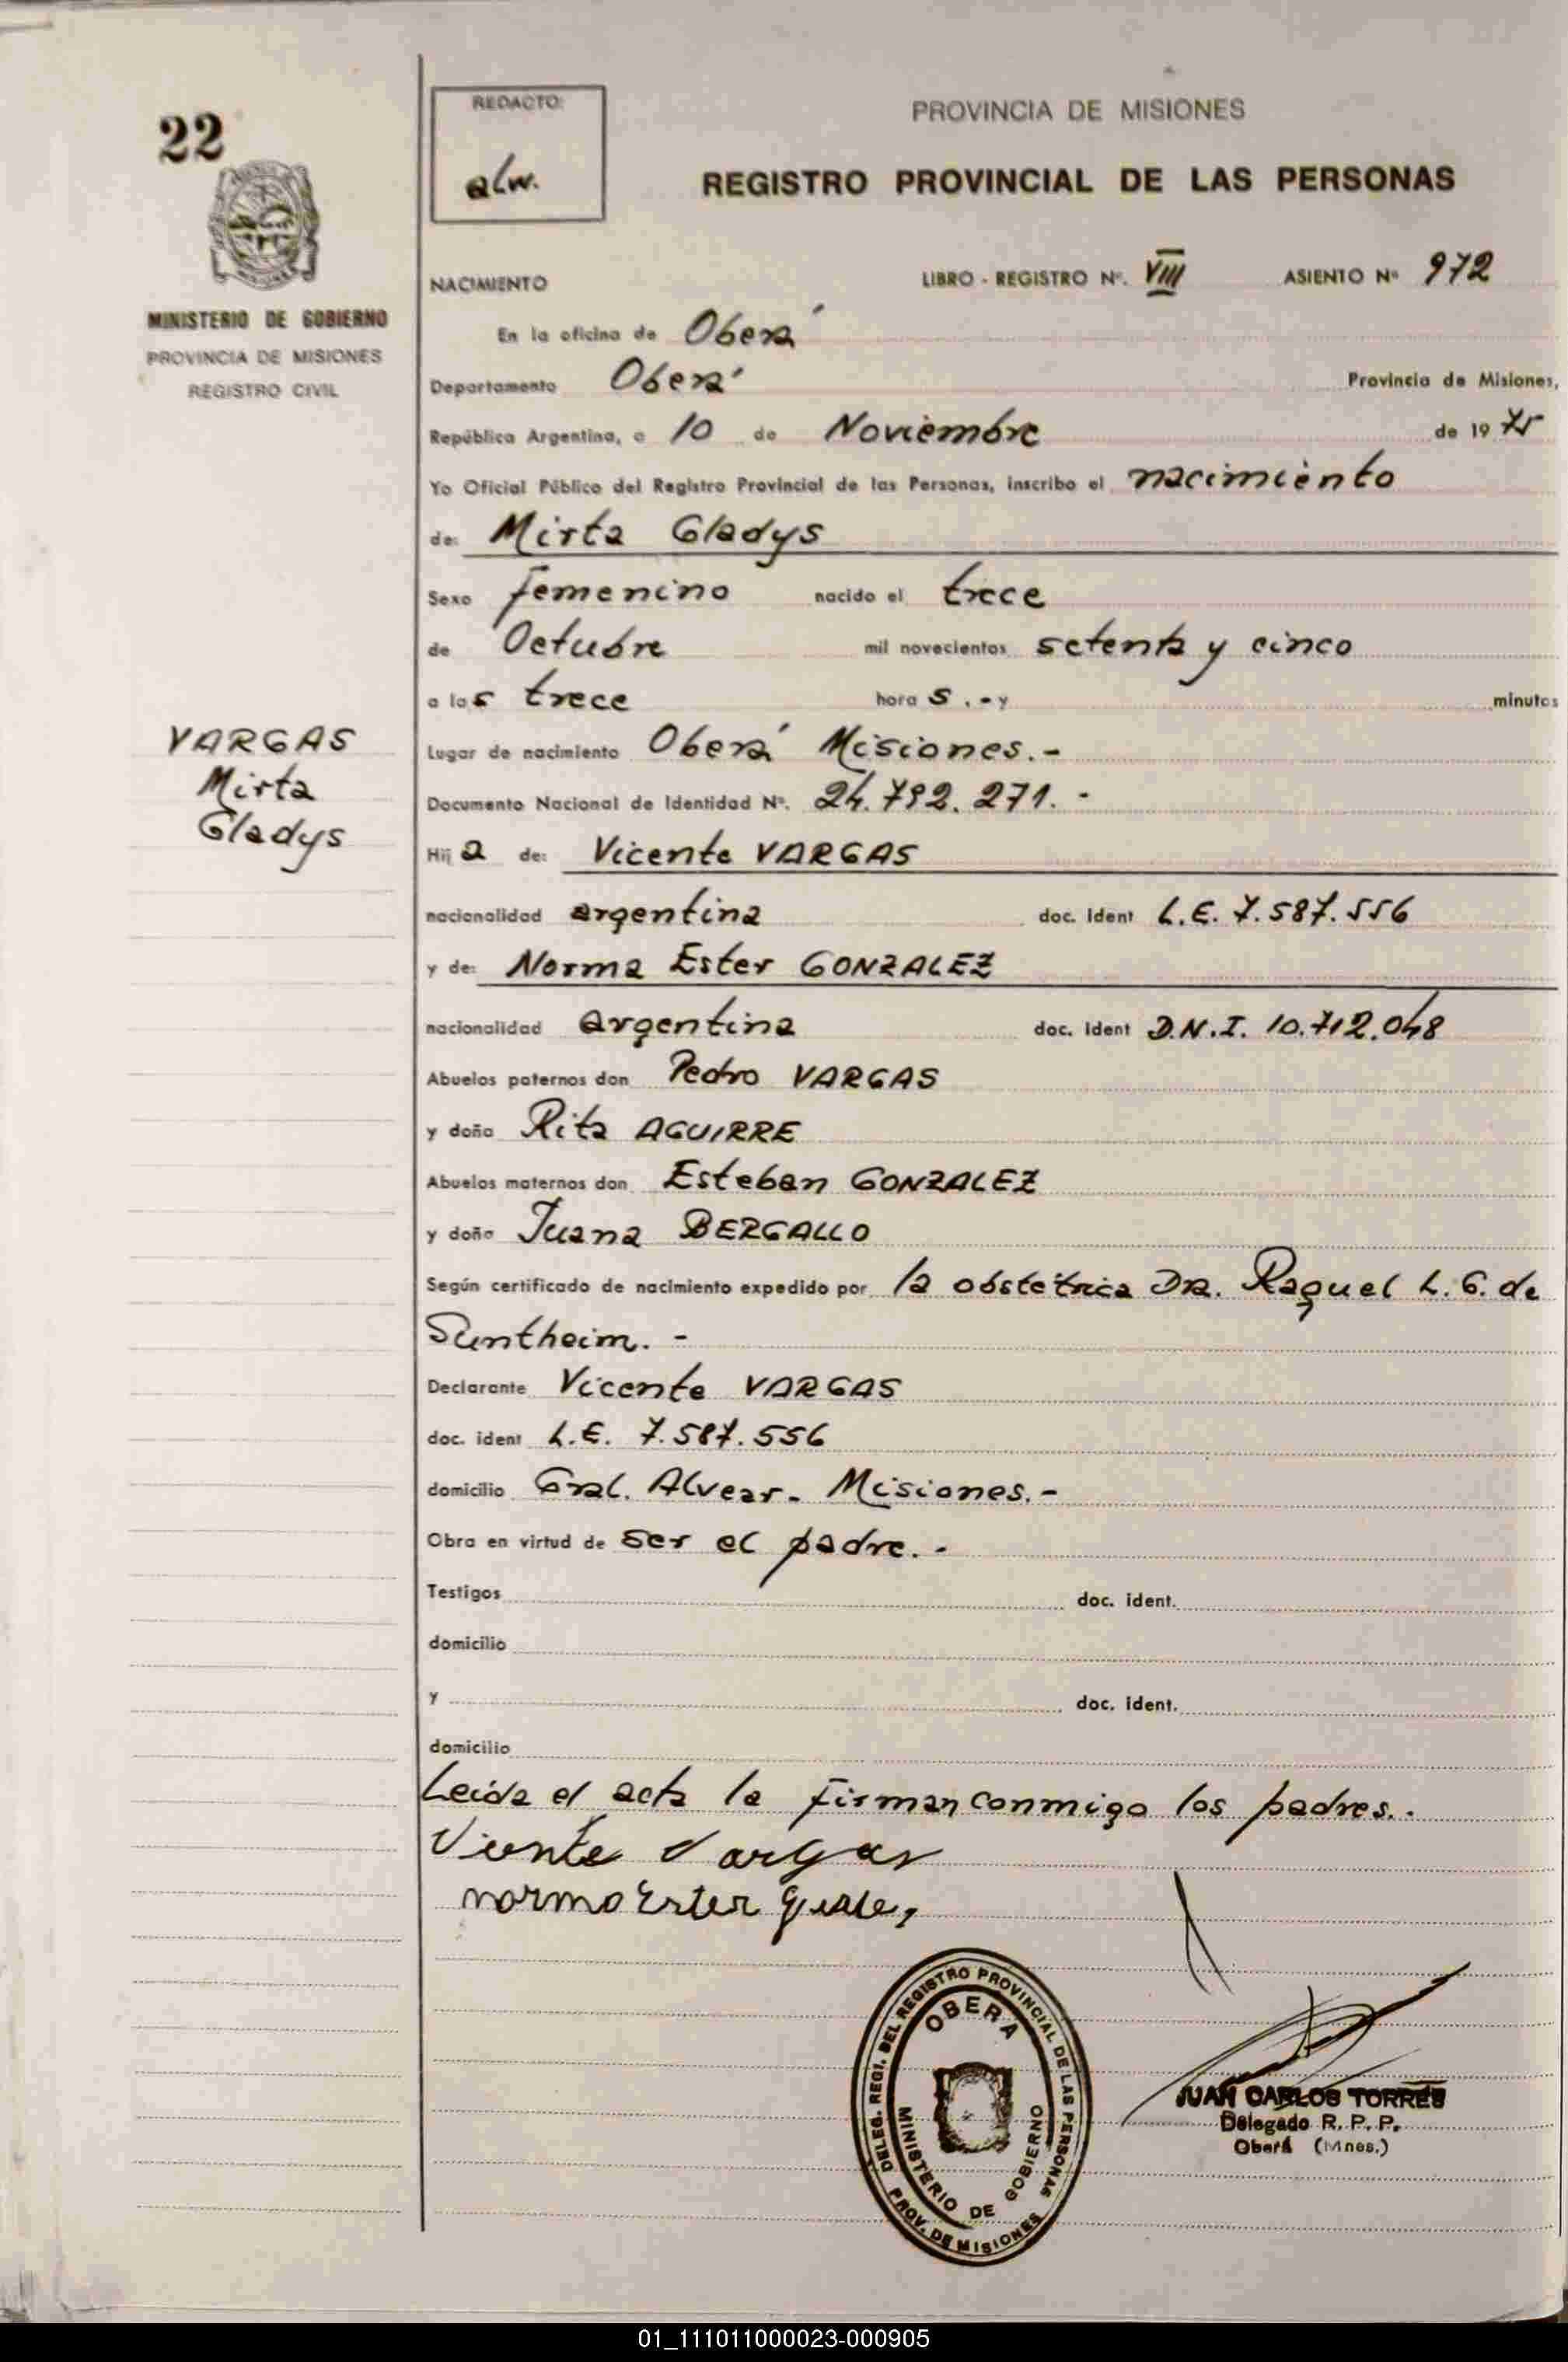 22
MINISTERIO DE GOBIERNO
PROVINCIA DE MISIONES
REGISTRO CIVIL
REDACTO:
alw.
PROVINCIA DE MISIONES
REGISTRO PROVINCIAL DE LAS PERSONAS
NACIMIENTO LIBRO - REGISTRO Nº. VIII ASIENTO Nº 972
En la oficina de Oberá
Departamento Oberá Provincia de Misiones,
República Argentina, a 10 de Noviembre de 1975
Yo Oficial Público del Registro Provincial de las Personas, inscribo el nacimiento
de: Mirta Gladys
Sexo femenino nacido el trece
de Octubre mil novecientos setenta y cinco
a las trece hora s .- y minutos
VARGAS
Mirta
Gladys
Lugar de nacimiento Oberá Misiones.-
Documento Nacional de Identidad Nº. 24.792.271.-
Hij a de: Vicente VARGAS
nacionalidad argentina doc. Ident L.E. 7.587.556
y de: Norma Ester GONZALEZ
nacionalidad argentina doc. Ident D.N.I. 10.712.048
Abuelos paternos don Pedro VARGAS
y doña Rita AGUIRRE
Abuelos maternos don Esteban GONZALEZ
y doña Juana BERGALLO
Según certificado de nacimiento expedido por la obstétrica Dra. Raquel L. G. de
Suntheim.-
Declarante Vicente VARGAS
doc. ident L.E. 7.587.556
domicilio Gral. Alvear - Misiones.-
Obra en virtud de ser el padre.-
Testigos doc. ident.
domicilio
y doc. ident.
domicilio
Leida el acta la firman conmigo los padres.-
Vicente Vargas
norma Ester
DELEG. REGI. DEL REGISTRO PROVINCIAL DE LAS PERSONAS
OBERA
MINISTERIO DE GOBIERNO
PROV. DE MISIONES
JUAN CARLOS TORRES
Delegado R. P. P.
Oberá (Mnes.)
01_111011000023-000905